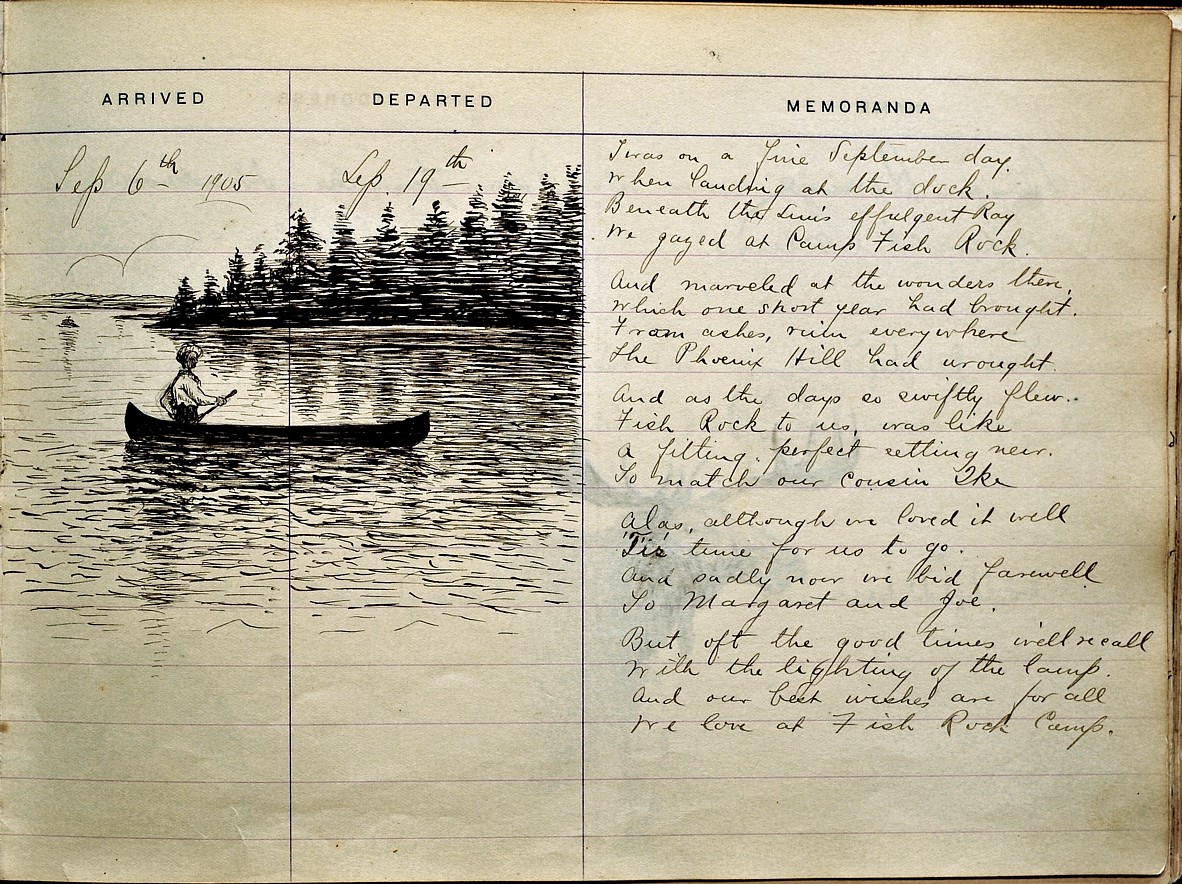 ARRIVED
DEPARTED
MEMORANDA
Sep 6th 1905
Sep. 19th
Twas on a fine September day.
When landing at the dock.
Beneath the Sun's effulgent Ray
We gazed at Camp Fish Rock.
And marveled at the wonders there,
Which one short year had brought.
From ashes, ruin everywhere
The Phoenix Hill had wrought.
And as the days so swiftly flew..
Fish Rock to us, was like
A fitting, perfect setting new.
To match our cousin Ike
Alas, although we loved it well
'Tis time for us to go.
And sadly now we bid farewell
To Margaret and Joe.
But oft the good times we'll recall
With the lighting of the lamp.
And our best wishes are for all
We love at Fish Rock Camp.